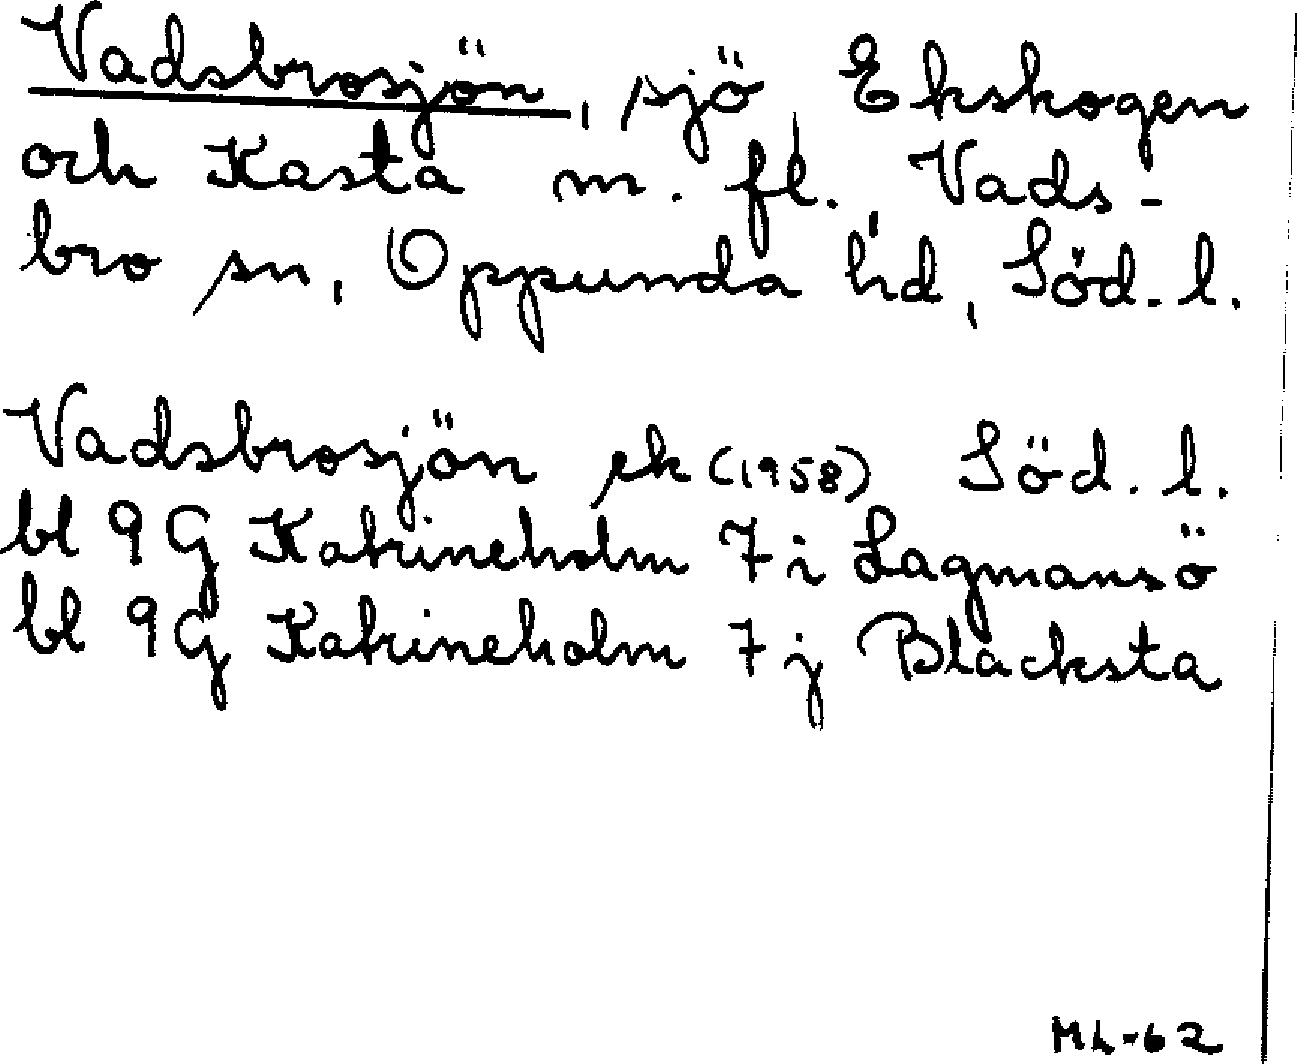 Vadsbrosjön, sjö, Ekskogen
och Kasta m. fl., Vads-
bro sn, Oppunda hd, Söd. l.
Vadsbrosjön ek (1958) Söd. l.
bl 9 G Katrineholm 7 i Lagmansö
bl 9 G Katrineholm 7 j Blacksta
ML-62